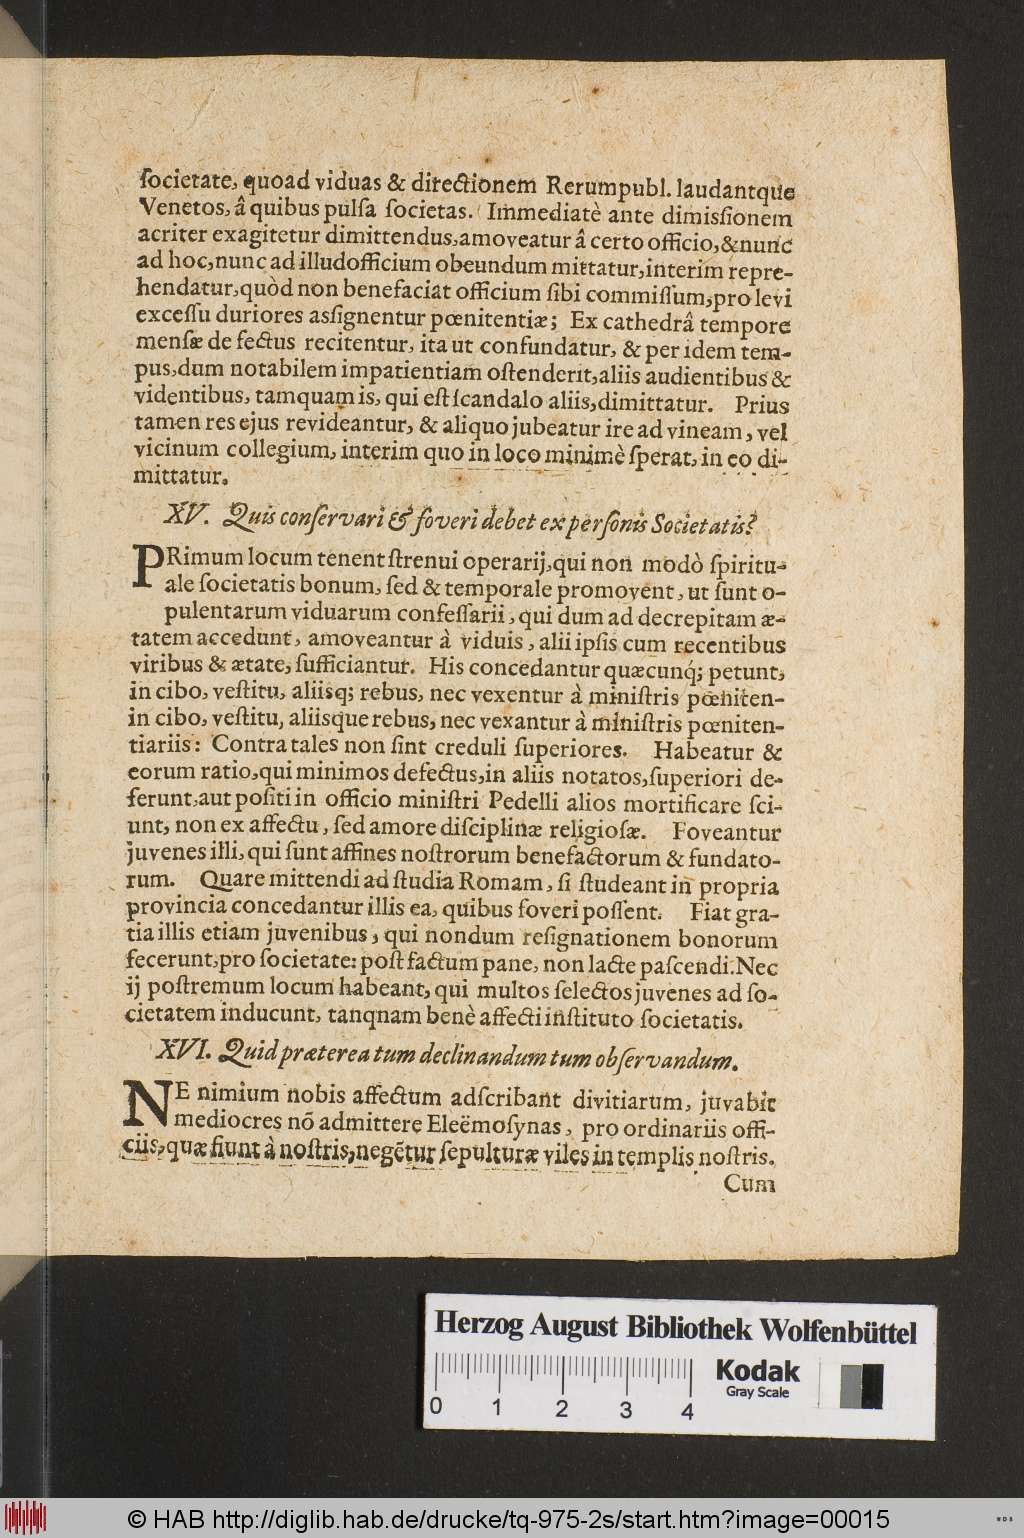 ſocietate, quoad viduas & directionem Rerumpubl. laudantque
Venetos, â quibus pulſa ſocietas. Immediatè ante dimisſionem
acriter exagitetur dimittendus, amoveatur â certo officio, & nunc
ad hoc, nunc ad illud officium obeundum mittatur, interim repre-
hendatur, quòd non benefaciat officium ſibi commiſſum, pro levi
exceſſu duriores asſignentur pœnitentiæ; Ex cathedrâ tempore
menſæ defectus recitentur, ita ut confundatur, & per idem tem-
pus, dum notabilem impatientiam oſtenderit, aliis audientibus &
videntibus, tamquam is, qui eſt ſcandalo aliis, dimittatur. Prius
tamen res ejus revideantur, & aliquo jubeatur ire ad vineam, vel
vicinum collegium, interim quo in loco minimè ſperat, in eo di-
mittatur.
XV. Quis conſervari & foveri debet ex perſonis Societatis?
PRimum locum tenent ſtrenui operarij, qui non modò ſpiritu-
ale ſocietatis bonum, ſed & temporale promovent, ut ſunt o-
pulentarum viduarum confeſſarii, qui dum ad decrepitam æ-
tatem accedunt, amoveantur à viduis, alii ipſis cum recentibus
viribus & ætate, ſufficiantur. His concedantur quæcunq́; petunt,
in cibo, veſtitu, aliisq; rebus, nec vexentur à miniſtris pœniten-
in cibo, veſtitu, aliisque rebus, nec vexantur à miniſtris pœniten-
tiariis: Contra tales non ſint creduli ſuperiores. Habeatur &
eorum ratio, qui minimos defectus, in aliis notatos, ſuperiori de-
ferunt, aut poſiti in officio miniſtri Pedelli alios mortificare ſci-
unt, non ex affectu, ſed amore diſciplinæ religioſæ. Foveantur
juvenes illi, qui ſunt affines noſtrorum benefactorum & fundato-
rum. Quare mittendi ad ſtudia Romam, ſi ſtudeant in propria
provincia concedantur illis ea, quibus foveri poſſent. Fiat gra-
tia illis etiam juvenibus, qui nondum reſignationem bonorum
fecerunt, pro ſocietate: poſt factum pane, non lacte paſcendi. Nec
ij poſtremum locum habeant, qui multos ſelectos juvenes ad ſo-
cietatem inducunt, tanqnam benè affecti inſtituto ſocietatis.
XVI. Quid præterea tum declinandum tum obſervandum.
NE nimium nobis affectum adſcribant divitiarum, juvabit
mediocres nõ admittere Eleëmoſynas, pro ordinariis offi-
ciis, quæ fiunt à noſtris, negẽtur ſepulturæ viles in templis noſtris.
Cum
Herzog August Bibliothek Wolfenbüttel
Kodak
Gray Scale
0 1 2 3 4
© HAB http://diglib.hab.de/drucke/tq-975-2s/start.htm?image=00015